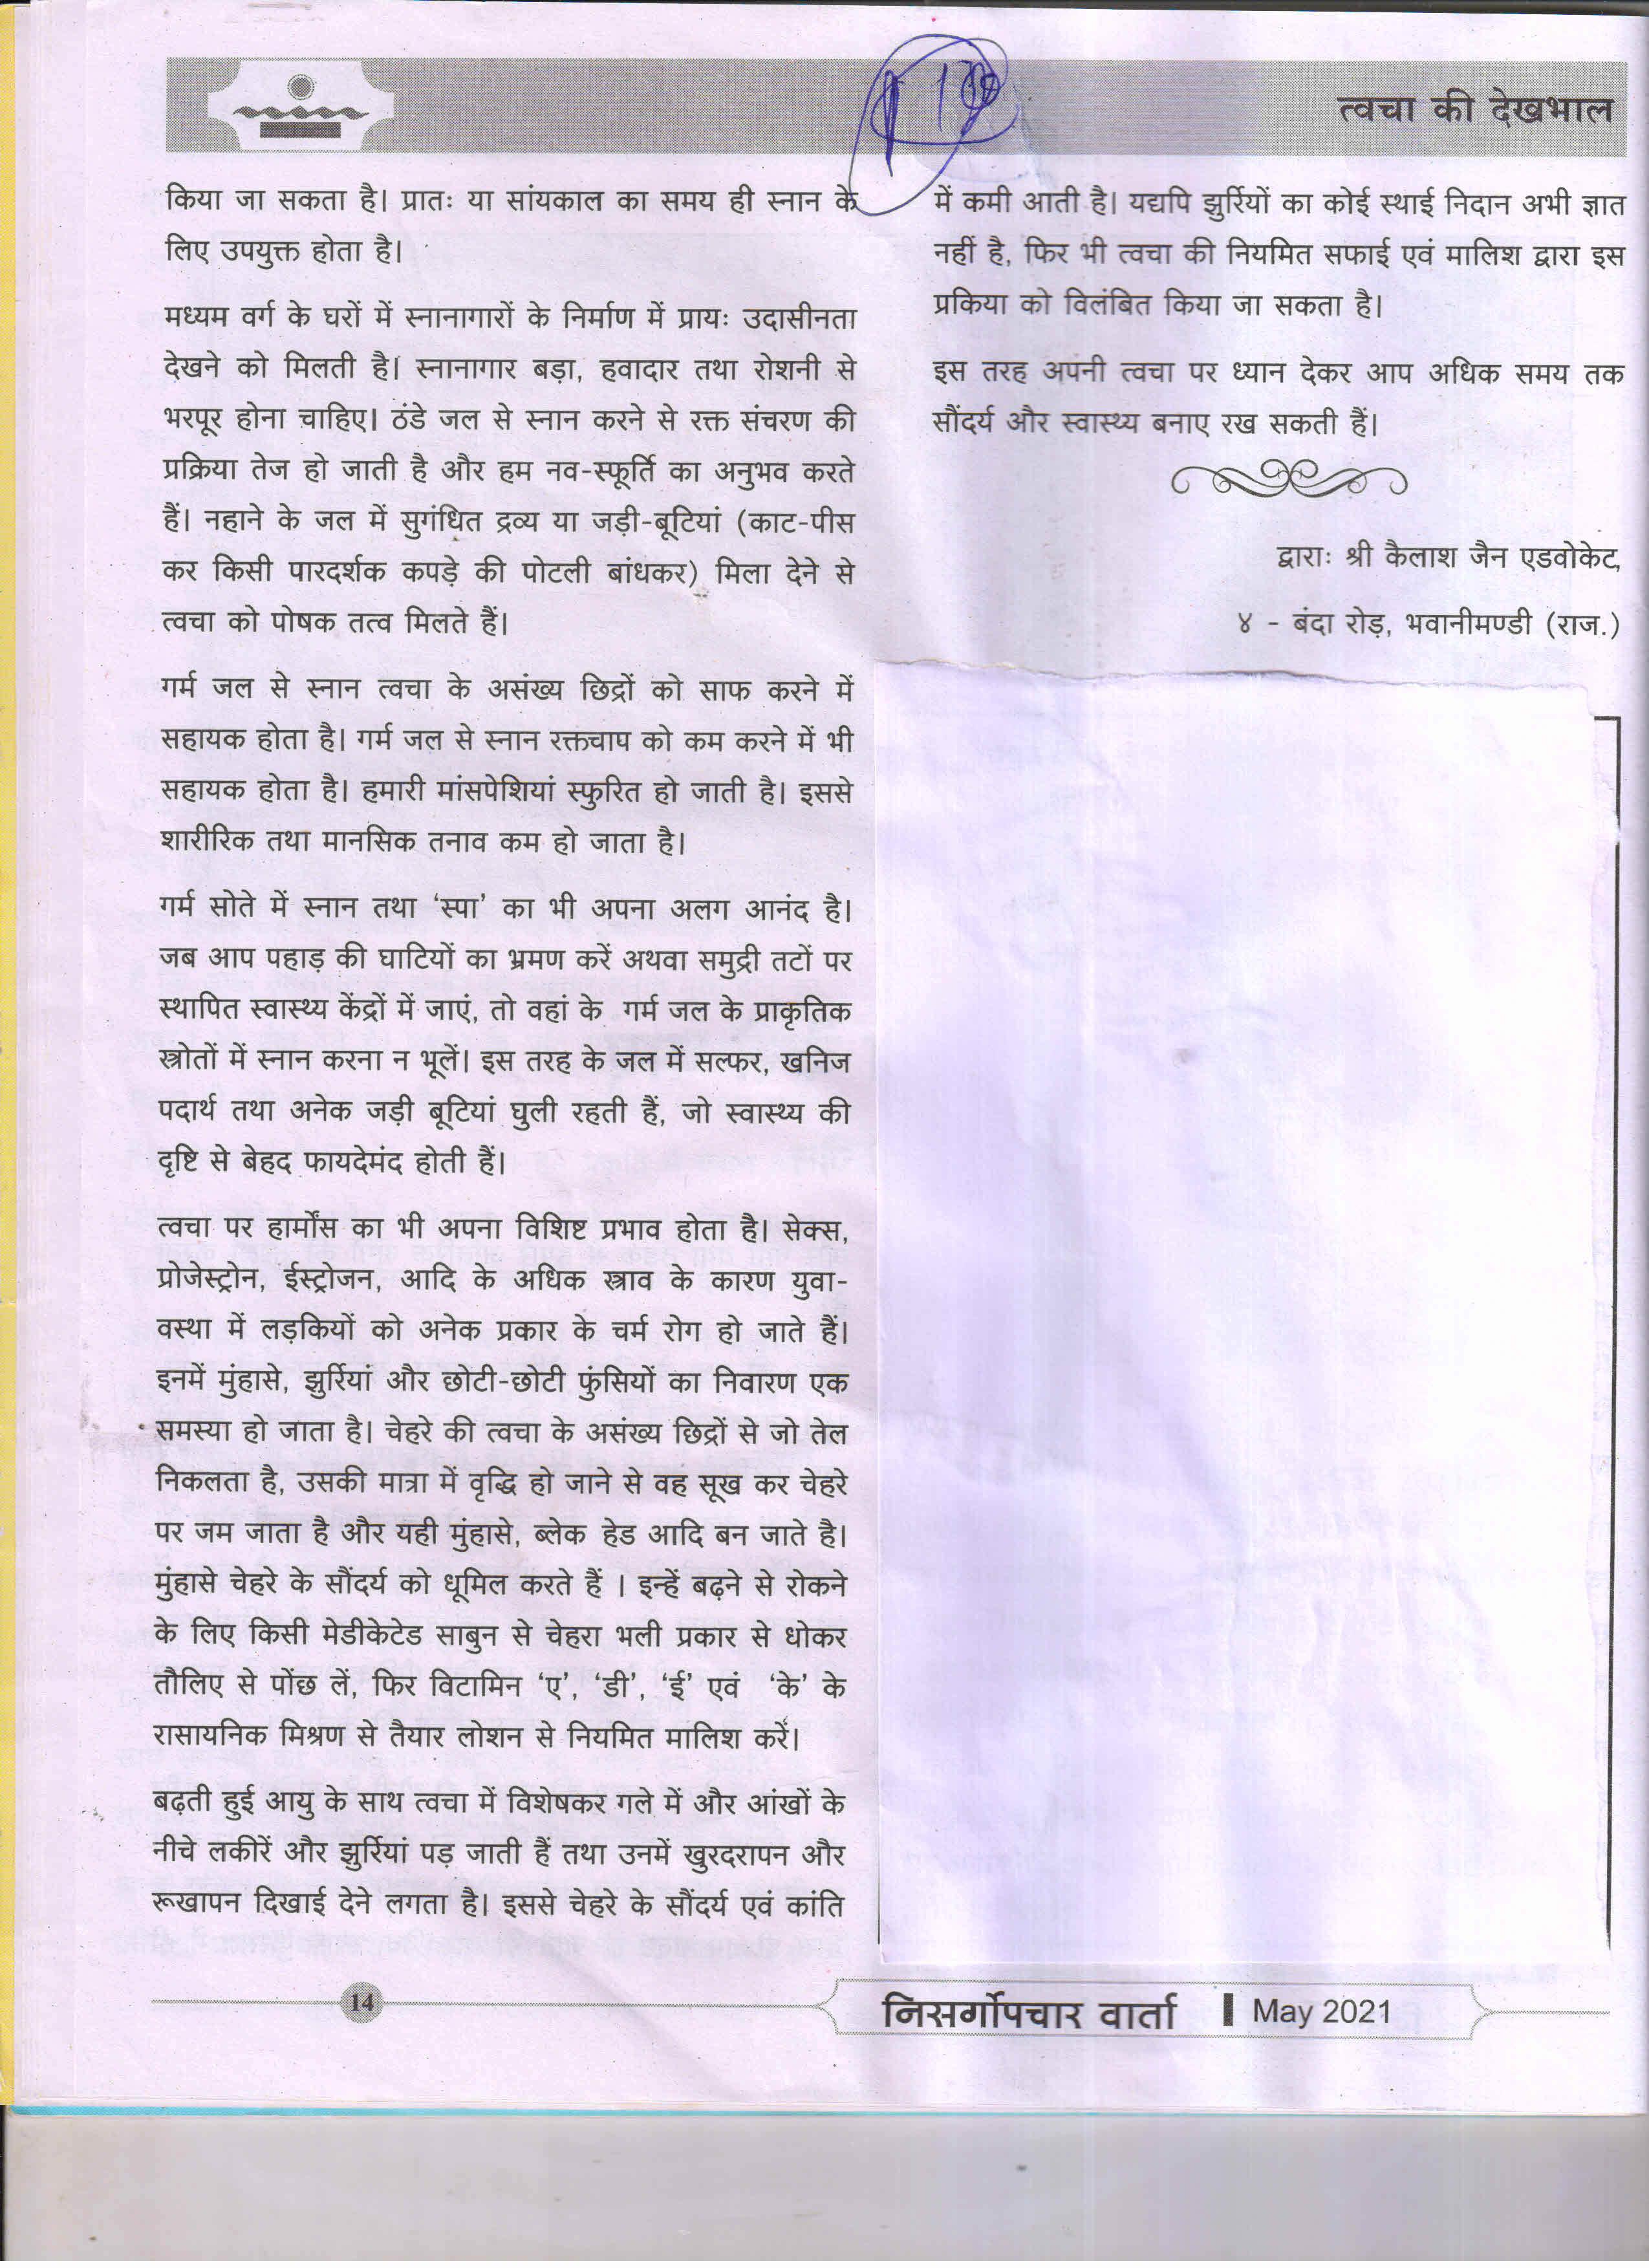 त्वचा की देखभाल
किया जा सकता है। प्रातः या सांयकाल का समय ही स्नान के
लिए उपयुक्त होता है।
मध्यम वर्ग के घरों में स्नानागारों के निर्माण में प्रायः उदासीनता
देखने को मिलती है। स्नानागार बड़ा, हवादार तथा रोशनी से
भरपूर होना चाहिए। ठंडे जल से स्नान करने से रक्त संचरण की
प्रक्रिया तेज हो जाती है और हम नव-स्फूर्ति का अनुभव करते
हैं। नहाने के जल में सुगंधित द्रव्य या जड़ी-बूटियां (काट-पीस
कर किसी पारदर्शक कपड़े की पोटली बांधकर) मिला देने से
त्वचा को पोषक तत्व मिलते हैं।
गर्म जल से स्नान त्वचा के असंख्य छिद्रों को साफ करने में
सहायक होता है। गर्म जल से स्नान रक्तचाप को कम करने में भी
सहायक होता है। हमारी मांसपेशियां स्फुरित हो जाती है। इससे
शारीरिक तथा मानसिक तनाव कम हो जाता है।
गर्म सोते में स्नान तथा ‘स्पा’ का भी अपना अलग आनंद है।
जब आप पहाड़ की घाटियों का भ्रमण करें अथवा समुद्री तटों पर
स्थापित स्वास्थ्य केंद्रों में जाएं, तो वहां के गर्म जल के प्राकृतिक
स्त्रोतों में स्नान करना न भूलें। इस तरह के जल में सल्फर, खनिज
पदार्थ तथा अनेक जड़ी बूटियां घुली रहती हैं, जो स्वास्थ्य की
दृष्टि से बेहद फायदेमंद होती हैं।
त्वचा पर हार्मोंस का भी अपना विशिष्ट प्रभाव होता है। सेक्स,
प्रोजेस्ट्रोन, ईस्ट्रोजन, आदि के अधिक स्त्राव के कारण युवा-
वस्था में लड़कियों को अनेक प्रकार के चर्म रोग हो जाते हैं।
इनमें मुंहासे, झुर्रियां और छोटी-छोटी फुंसियों का निवारण एक
समस्या हो जाता है। चेहरे की त्वचा के असंख्य छिद्रों से जो तेल
निकलता है, उसकी मात्रा में वृद्धि हो जाने से वह सूख कर चेहरे
पर जम जाता है और यही मुंहासे, ब्लेक हेड आदि बन जाते है।
मुंहासे चेहरे के सौंदर्य को धूमिल करते हैं । इन्हें बढ़ने से रोकने
के लिए किसी मेडीकेटेड साबुन से चेहरा भली प्रकार से धोकर
तौलिए से पोंछ लें, फिर विटामिन ‘ए’, ‘डी’, ‘ई’ एवं ‘के’ के
रासायनिक मिश्रण से तैयार लोशन से नियमित मालिश करें।
बढ़ती हुई आयु के साथ त्वचा में विशेषकर गले में और आंखों के
नीचे लकीरें और झुर्रियां पड़ जाती हैं तथा उनमें खुरदरापन और
रूखापन दिखाई देने लगता है। इससे चेहरे के सौंदर्य एवं कांति
में कमी आती है। यद्यपि झुर्रियों का कोई स्थाई निदान अभी ज्ञात
नहीं है, फिर भी त्वचा की नियमित सफाई एवं मालिश द्वारा इस
प्रकिया को विलंबित किया जा सकता है।
इस तरह अपनी त्वचा पर ध्यान देकर आप अधिक समय तक
सौंदर्य और स्वास्थ्य बनाए रख सकती हैं।
द्वाराः श्री कैलाश जैन एडवोकेट,
४ - बंदा रोड़, भवानीमण्डी (राज.)
14
निसर्गोपचार वार्ता May 2021